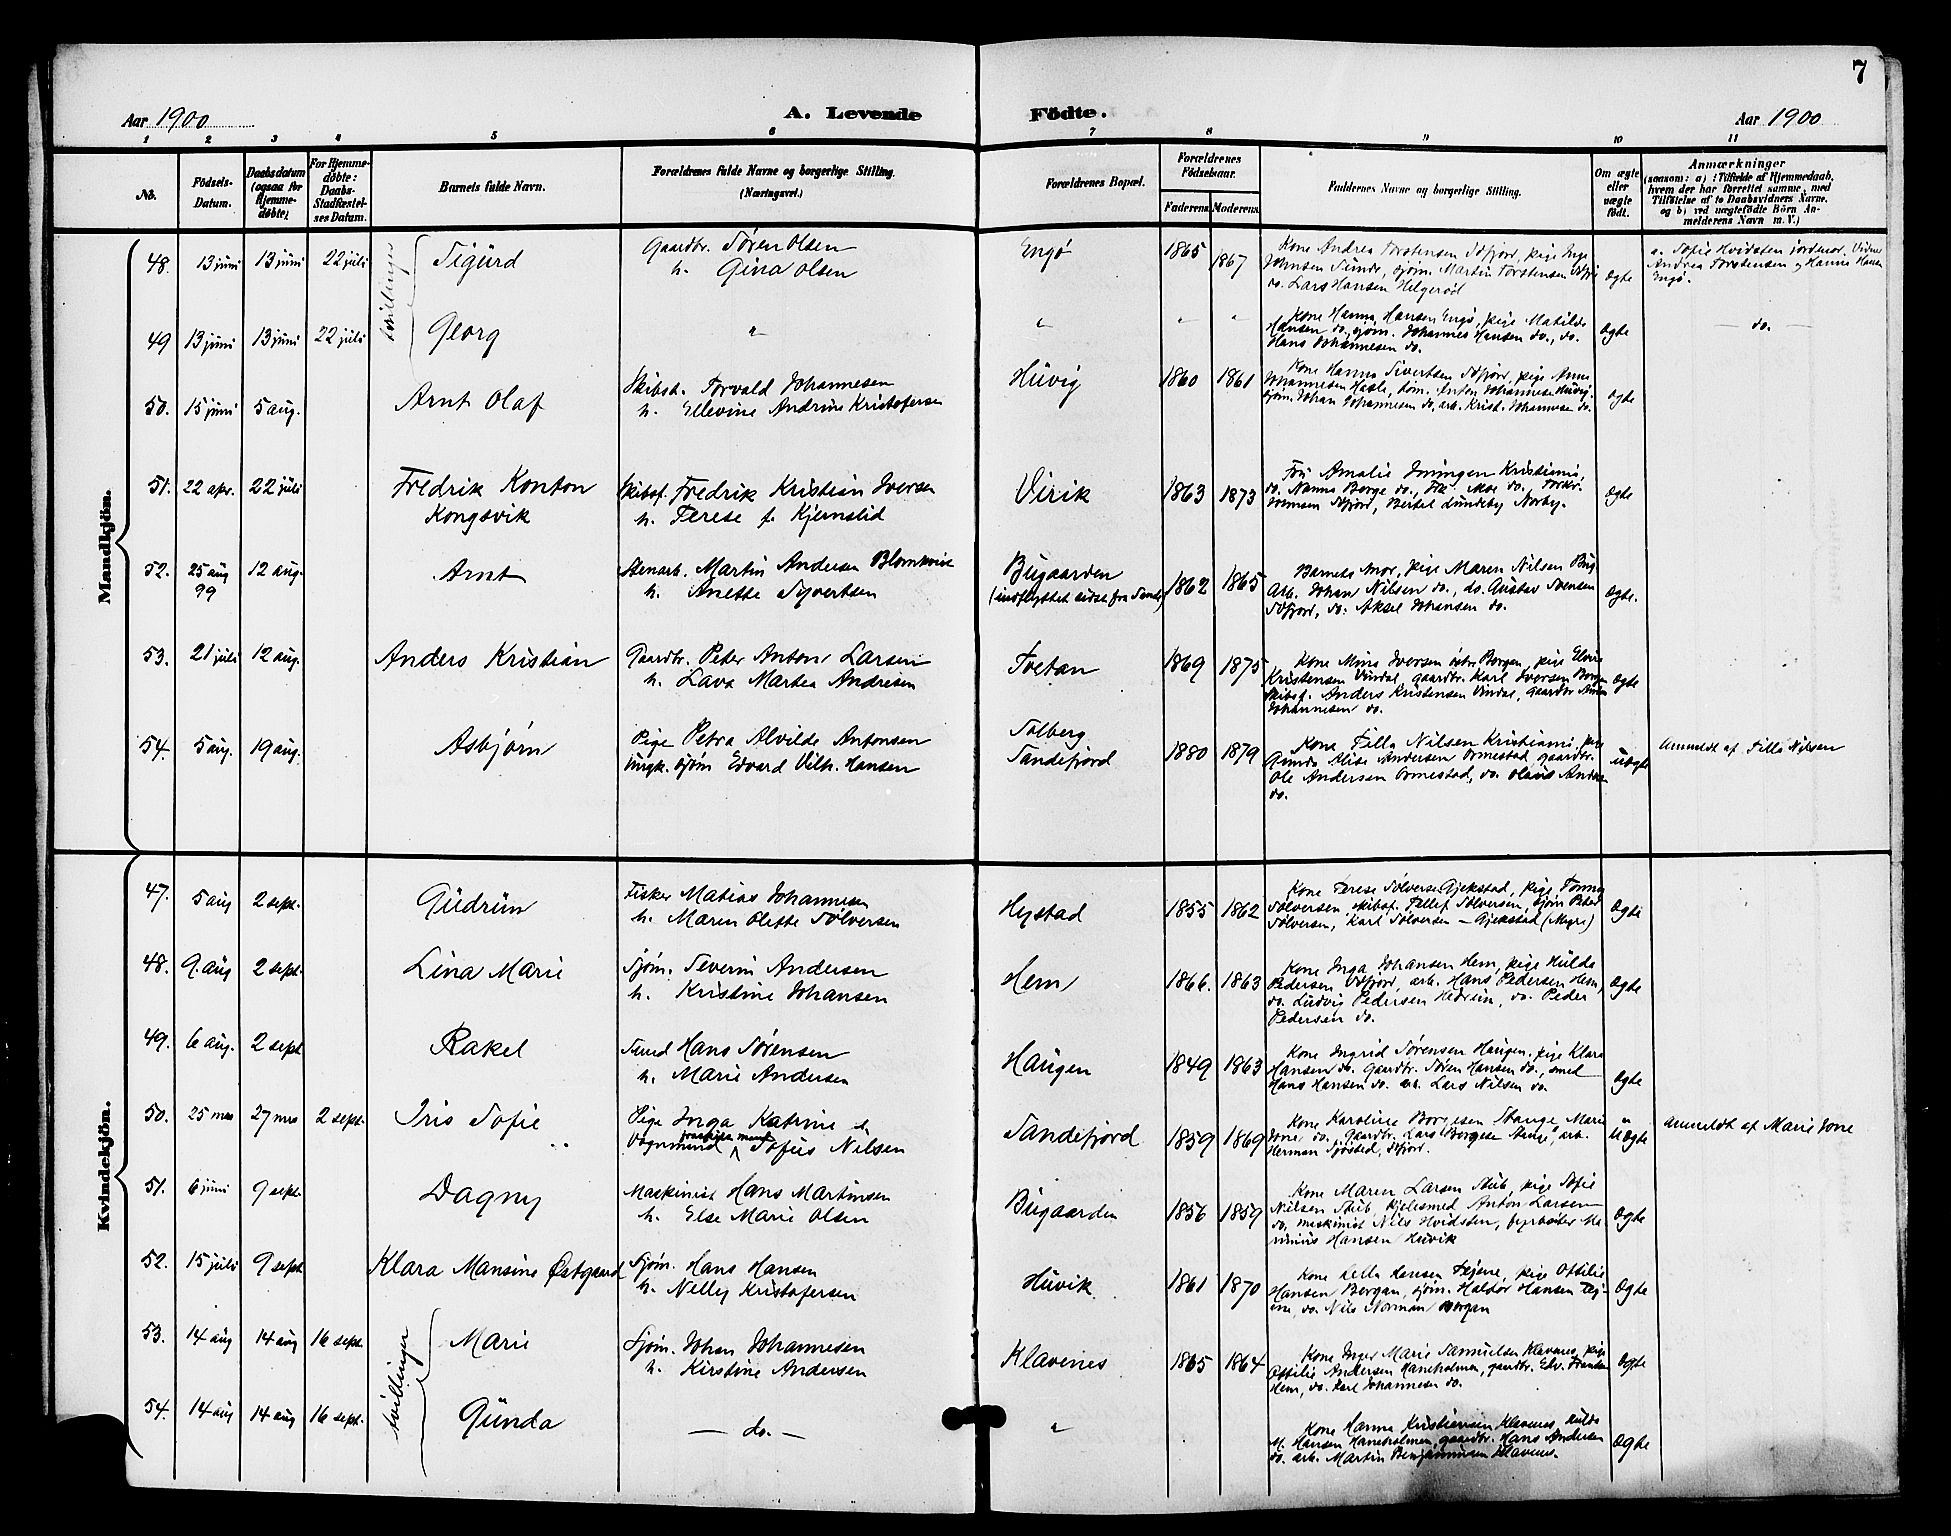 7
Aar 1900 A. Levende Fødte. Aar 1900
1 2 3 4 5 6 7 8 9 10 11
No. Födsels-Datum. Daabsdatum (ogsaa for Hjemme-döbte) For Hjemme-döbte: Daabs-Stadfæstel-ses Datum. Barnets fulde Navn. Forældrenes fulde Navne og borgerlige Stilling. (Næringsvei.) Forældrenes Bopæl. Forældrenes Födselsaar. Faderens Moderens Faddernes Navne og borgerlige Stilling. Om ægte eller uægte födt. Anmærkninger (saasom: a) i Tilfælde af Hjemmedaab, hvem der har forrettet samme, med Tilföielse af to Daabsvidners Navne, og b) ved uægtefödte Börn An-melderens Navn m. V.)
Mandkjön.
48. 13 juni 13 juni 22 juli tvillinger Sigurd Gaardbr. Søren Olsen Engø 1865 1867 Kone Andrea Torstensen Sdfjord, pige Inga
h. Gina Olsen Johnsen Sunde, sjøm. Martin Torstensen
do. Lars Hansen Helgerød ægte
a. Sofie Hvidsten jordmor. Vidner
Andrea Torstensen og Hanna Hansen
Engø.
49 13 juni 13 juni 22 juli Georg " " " " Kone Hanna Hansen Engø, pige Matilde
Hansen do, sjøm. Johannes Hansen do., do.
Hans Johannesen do. ægte — do. —
50. 15 juni 5 aug. Arnt Olaf Skibst. Torvald Johannesen Huvig 1860 1861 Kone Hanna Sivertsen Sdfjord, pige Anne
h. Ellevine Andrine Kristofersen Johannesen Hasle, Anton Johannesen Huvig
sjøm. Johan Johannesen do, arb. Krist. Johannesen do. ægte
51. 22 apr. 22 juli Fredrik Konton Skibsf. Fredrik Kristian Iversen Virik 1863 1873 Fru Amalie Kristiania,
Kongsvik h. Terese f. Kjernslid do. Nanna Borge do., Frk. Moe do.
Sdfjord, Bertel Lundeby Norby. ægte
52. 25 aug 99 12 aug. Arnt Stenarb. Martin Andersen Blomkvist Bugaarden 1862 1865 Barnets mor, pige Maren Nilsen Bug.
h. Anette Syvertsen (indflyttet sidst fra Sande) Arb. Johan Nilsen do., do. Gustav Svensen
Sdfjord, do. Aksel Johansen do. ægte.
53. 21 juli 12 aug. Anders Kristian Gaardbr. Peter Anton Larsen Tvetan 1869 1875 Kone Mina Iversen østre Borgen, pige Elvira
h. Lava Martea Andresen Kristensen Vindal, gaardbr. Karl Iversen Borgen
Skibsf. Anders Kristensen Vindal, gaardbr.
Johannesen do. ægte
54. 5 aug. 19 aug. Asbjørn Pige Petra Alvilde Antonsen Solberg 1880 1879 Kone Tilla Nilsen Kristiania, pige
Ungk. sjøm Edvard Vilh. Hansen Sandefjord Gunda Alise Andersen Ormestad, gaardbr.
Ole Andersen Ormestad, do. Olaus Andersen
do. uægte Anmeldt af Tilla Nilsen
Kvindekjön.
47. 5 aug 2 sept. Gudrun Fisker Matias Johannesen Hystad 1855 1862 Kone Terese Sølversen Gjekstad, pige
h. Maren Olette Sølversen Sølversen, skibsf. Tellef Sølversen, sjøm Peter
Sølversen, Karl Sølversen — Gjekstad (Myra) ægte
48. 9. aug 2 sept. Lina Marie Sjøm. Severin Andersen Hem 1866. 1863 Kone Inga Johansen Hem, pige Hulda
h. Kristine Johansen Pedersen Sdfjord, arb. Hans Pedersen Hem,
do. Ludvig Pedersen Hedrum, do. Peder
Pedersen do. ægte
49. 6 aug. 2 sept. Rakel Smed Hans Sørensen Haugen 1849 1863 Kone Ingrid Sørensen Haugen, pige Klara
h. Marie Andersen Hansen do. Gaardbr. Søren Hansen do., smed
Hans Hansen do. arb. Lars Nilsen do. ægte
50. 25 mrs 27 mrs 2 sept. Iris Sofie Pige Inga Katrine Sandefjord 1859 1869 Kone Karoline Borgesen Stange, Marie
Vognmand fraskilte mand Sofus Nilsen Tone, do. Gaardbr. Lars Borgesen Stange, arb.
Herman Sjøsted, Sdfjord. uægte Anmeldt af Marie Tone
51. 6 juni 9 sept. Dagny Maskinist Hans Martinsen Bugaarden 1856 1859 Kone Maren Larsen Stub, pige Sofie
h. Else Marie Olsen Nilsen Stub, kjelesmed Anton Larsen
do, maskinist Nils Hvidsten, fyrbøter
Hansen Huvik ægte
52. 15 juli 9 sept Klara Mansine Østgaard Sjøm. Hans Hansen Huvik 1861 1870 Kone Hansen pige Ottilie
h. Nelly Kristofersen Hansen Bergan, sjøm. Haldor Hansen
do. Nils Norman Bergan ægte
53. 14 aug 14 aug 16 sept. tvillinger Marie Sjøm. Johan Johannesen Klavenes 1865 1864 Kone Inger Marie Samuelsen Klavenes, pige
h. Kirstine Andersen Ottilie Andersen Haneholmen, gaardbr. Edv. Frantsen
Hem, do. Karl Johannesen do. ægte
54. 14 aug 14 aug 16 sept. Gunda — do. — " Kone Hanna Kristiansen Klavenes, Hulda
M. Hansen Haneholmen, gaardbr. Hans Andersen
do. arb. Martin Benjaminsen Klavenes. ægte